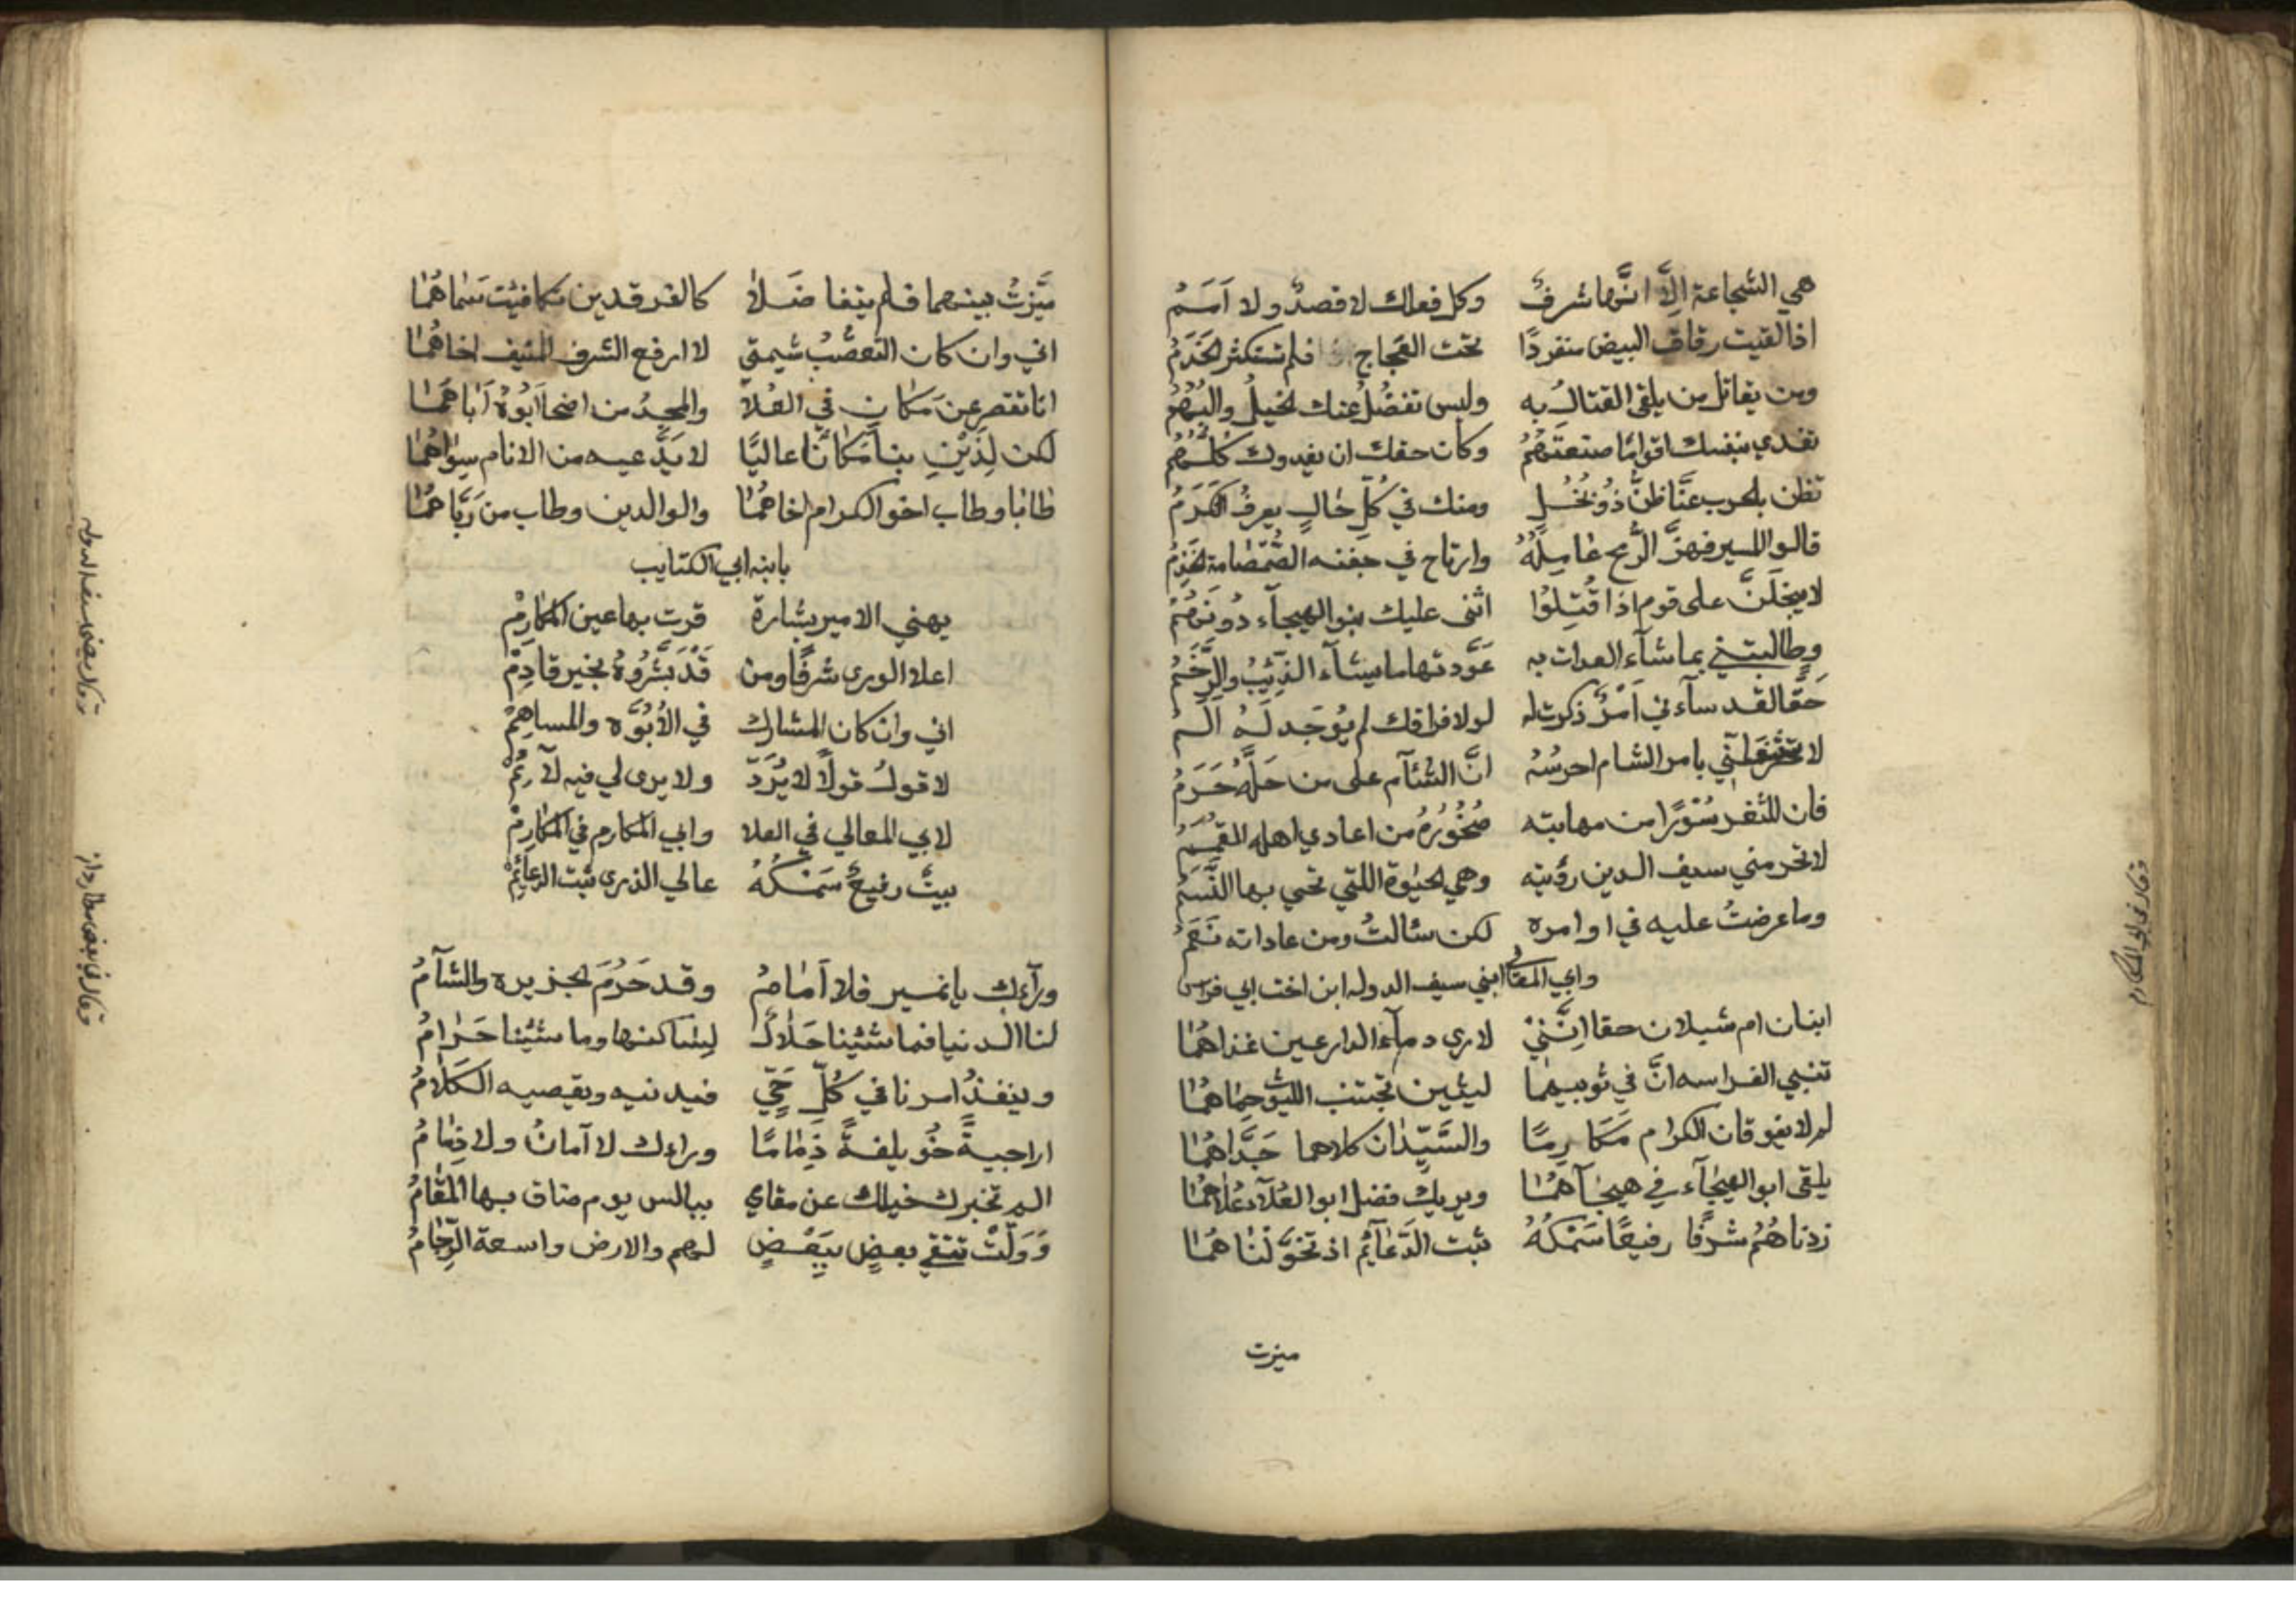 هي الشجاعة الا انها شرف وكل فعلك لا قصد ولا امم
اذا لقيت رقاق البيض منفردا تحت العجاج فلم تستكثر الخدم
ومن يقاتل من يلقى القتال به وليس تفضل عنك الخيل والبهم
تفدي بنفسك اقواما صنعتهم وكان حقك ان يفدوك كلهم
تظن بالحرب عنا ظن ذو بخل ومنك في كل حال يعرف الكرم
قالوا المسير فهز الرمح عامله وارتاح في جفنه الصمصامة الخذم
لا يبخلن على قوم اذا قتلوا اثنى عليك بنو الهيجآء دونهم
وطالبتني بما شآء العداة به عودتها ما يشآء الذئب والرخم
حقا لقد سآءني امر ذكرت له لولا فراقك لم يوجد له الم
لا بامر الشام احرسه ان الشئآم على من حله حرم
فان للثغر سورا من مهابته صخوره من اعادي اهله القمم
لا تحرمني سيف الدين رؤيته وهي الحيوة اللتي تحيى بها النسم
وما عرضت عليه في اوامره لكن سئالت ومن عاداته نعم
وابي المعالي ابني سيف الدوله ابن اخت ابي فراس
ابنان ام شبلان حقا انني لارى دمآء الدارعين غذاهما
تنبي الفراسه ان في ثوبيهما ليثين تجتنب الليوث حماهما
لم لا يفوقان الكرام مكارما والسيدان كلاهما جداهما
يلقى ابو الهيجآء في هيجآهما ويريك فضل ابو العلآء علاهما
زدناهم شرفا رفيعا سمكه ثبت الدعآئم اذ تخولناهما
ميزت
وقال في ابي المكارم
ميزت بينهما فلم يتفا ضلا كالفرقدين تكافيت سماهما
اني وان كان التعصب شيمتي لا ارفع الشرف المنيف اخاهما
انا نقصر عن مكان في العلا والمجد من اضحا ابوه اباهما
لكن لذين بنا مكانا عاليا لا يدعيه من الانام سواهما
طابا وطاب اخو الكرام اخاهما والوالدين وطاب من رباهما
بابنه ابي الكتايب
يهني الامير بشارة قرت بها عين المكارم
اعلا الورى شرفا ومن قد بشروه بخير قادم
اني وان كان المشارك في الابوه والمساهم
لاقول قولا لا يرد ولا يرى لي فيه لآئم
لابي المعالي في العلا وابي المكارم في المكارم
بيت رفيع سمكه عالي الذرى ثبت الدعآئم
ورآءك يا نمير فلا امام وقد حرم الجزيره والشآم
لنا الدنيا فما شئينا حلال لساكنها وما شئينا حرام
وينفذ امرنا في كل حي فيدنيه ويقصيه الكلام
اراجية خويلفة ذماما وراءك لا آمان ولا ذمام
الم تخبرك خيلك عن مقامي ببالس يوم ضاق بها المقام
وولت تتقي بعض ببعض لهم والارض واسعة الزحام